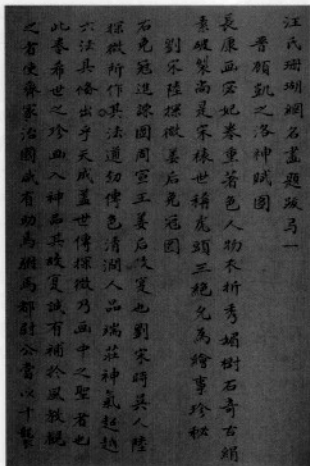 汪氏珊瑚網名畫題跋弓一
晉顧凱之洛神賦圖
長康画宓妃卷重著色人物衣折秀媚樹石奇古絹
素破裂尚是宋裱世稱虎頭三絕允為繪事珍秘
劉宋陸探微姜后免冠圖
右免冠進諫圖周宣王姜后後事也劉宋時吳人陸
探微所作其法道勁傳色清潤人品端莊神氣超越
六法具備出乎天成蓋世傳探微乃画中之聖者也
此卷希世之珍画入神品其故實誠有補於風教觀
之者使齊家治國咸有助焉駙馬都尉公當以十襲